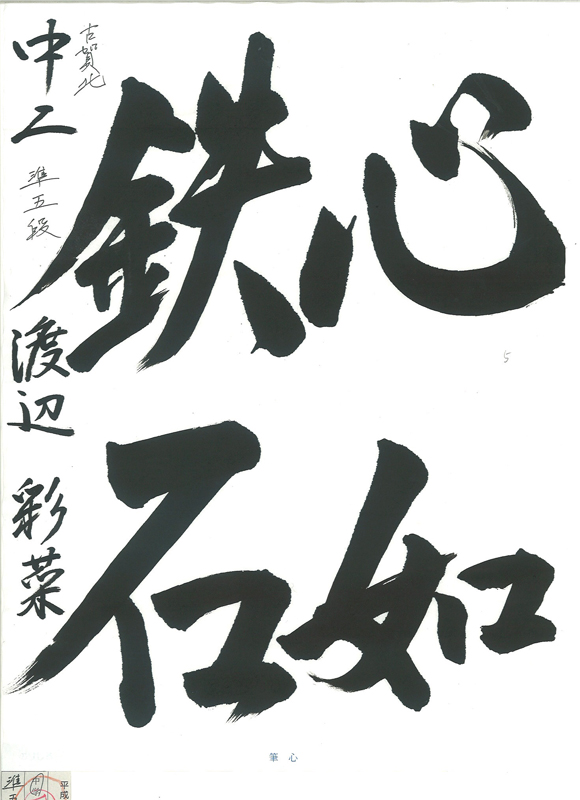 心如
鉄石
古賀北
中二 準五段 渡辺 彩菜
5
筆心
準五
中学
平成